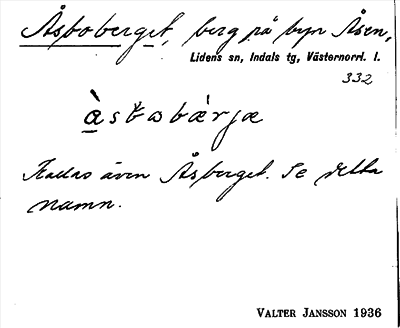 Åsboberget, berg på byn Åsen,
Lidens sn, Indals tg, Västernorrl. l.
332
Kallas även Åsberget. Se detta
namn.
VALTER JANSSON 1936